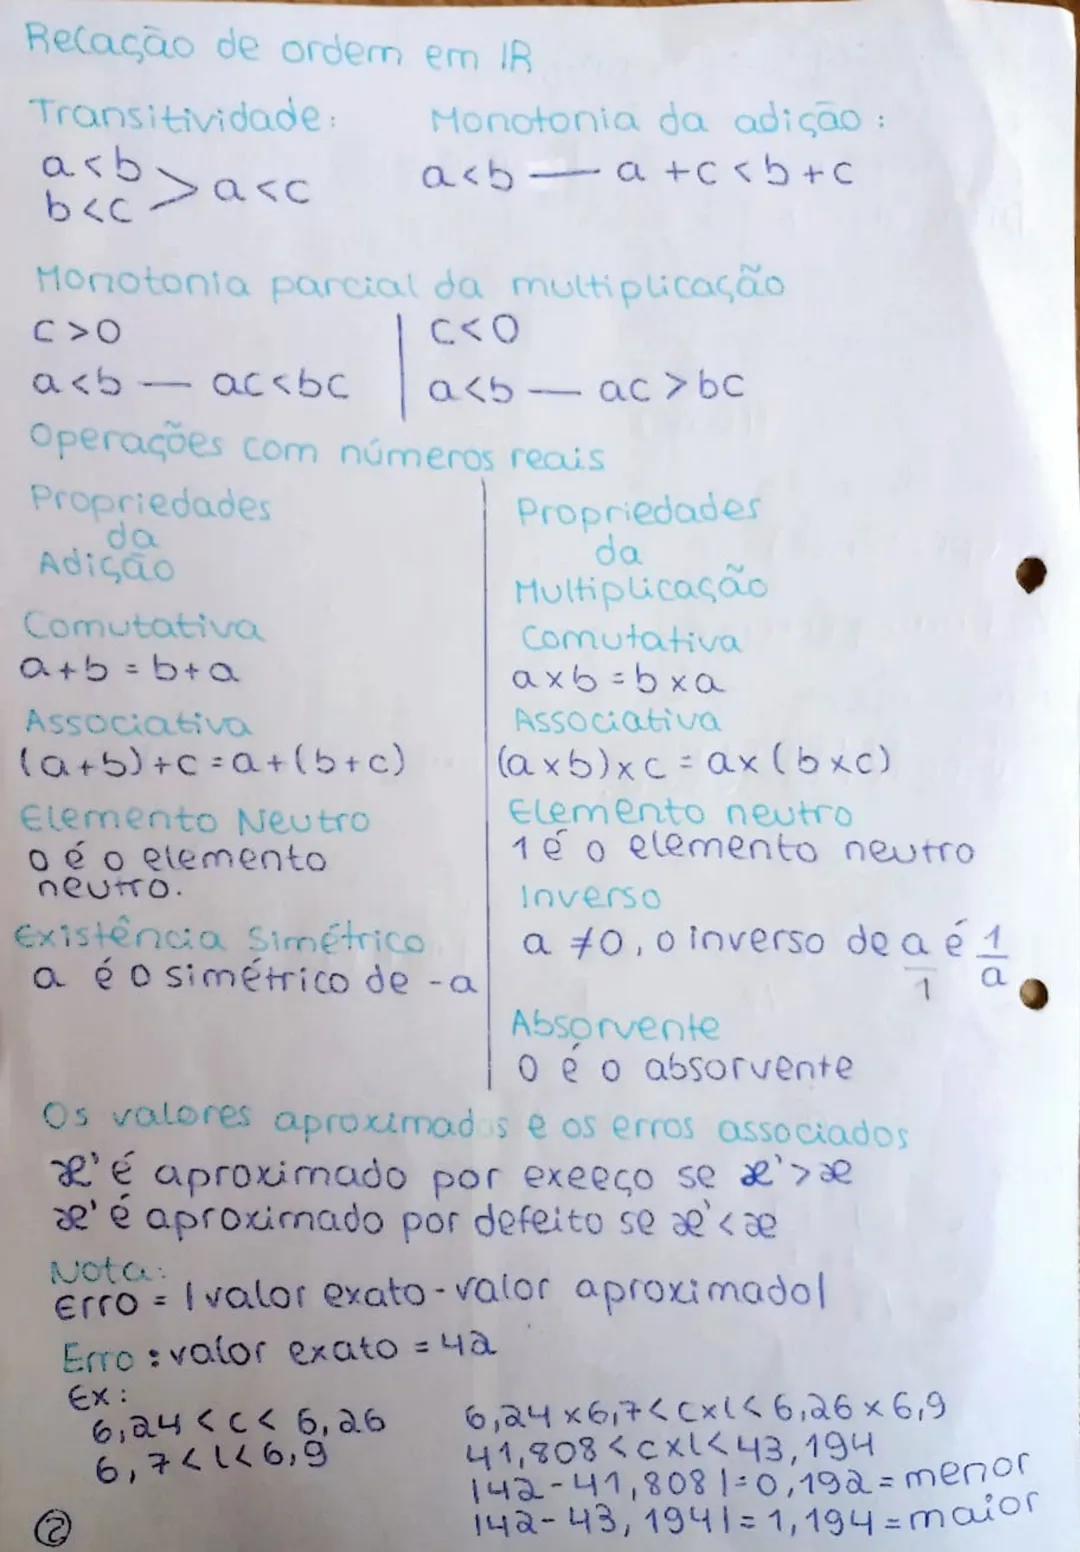 Relação de ordem em IR
Transitividade:
a<b
b<c > a<c
Monotonia da adição:
a<b — a +c <b+c
Monotonia parcial da multiplicação
c>0
a<b — ac<bc
c<0
a<b — ac >bc
Operações com números reais
Propriedades
da
Adição
Comutativa
a+b = b+a
Associativa
(a+b)+c = a+(b+c)
Elemento Neutro
0 é o elemento
neutro.
Existência Simétrico
a é o simétrico de -a
Propriedades
da
Multiplicação
Comutativa
axb = bxa
Associativa
(axb)xc = ax(bxc)
Elemento neutro
1 é o elemento neutro
Inverso
a ≠0, o inverso de a/1 é 1/a
Absorvente
0 é o absorvente
Os valores aproximados e os erros associados
x' é aproximado por exeeço se x'>x
x' é aproximado por defeito se x'<x
Nota:
Erro = |valor exato - valor aproximado|
Erro : valor exato = 42
Ex:
6,24 <c< 6,26
6,7<l<6,9
6,24 x6,7< cxl< 6,26 x 6,9
41,808 < cxl<43,194
|42-41,808|=0,192=menor
|42-43,194|=1,194=maior
2